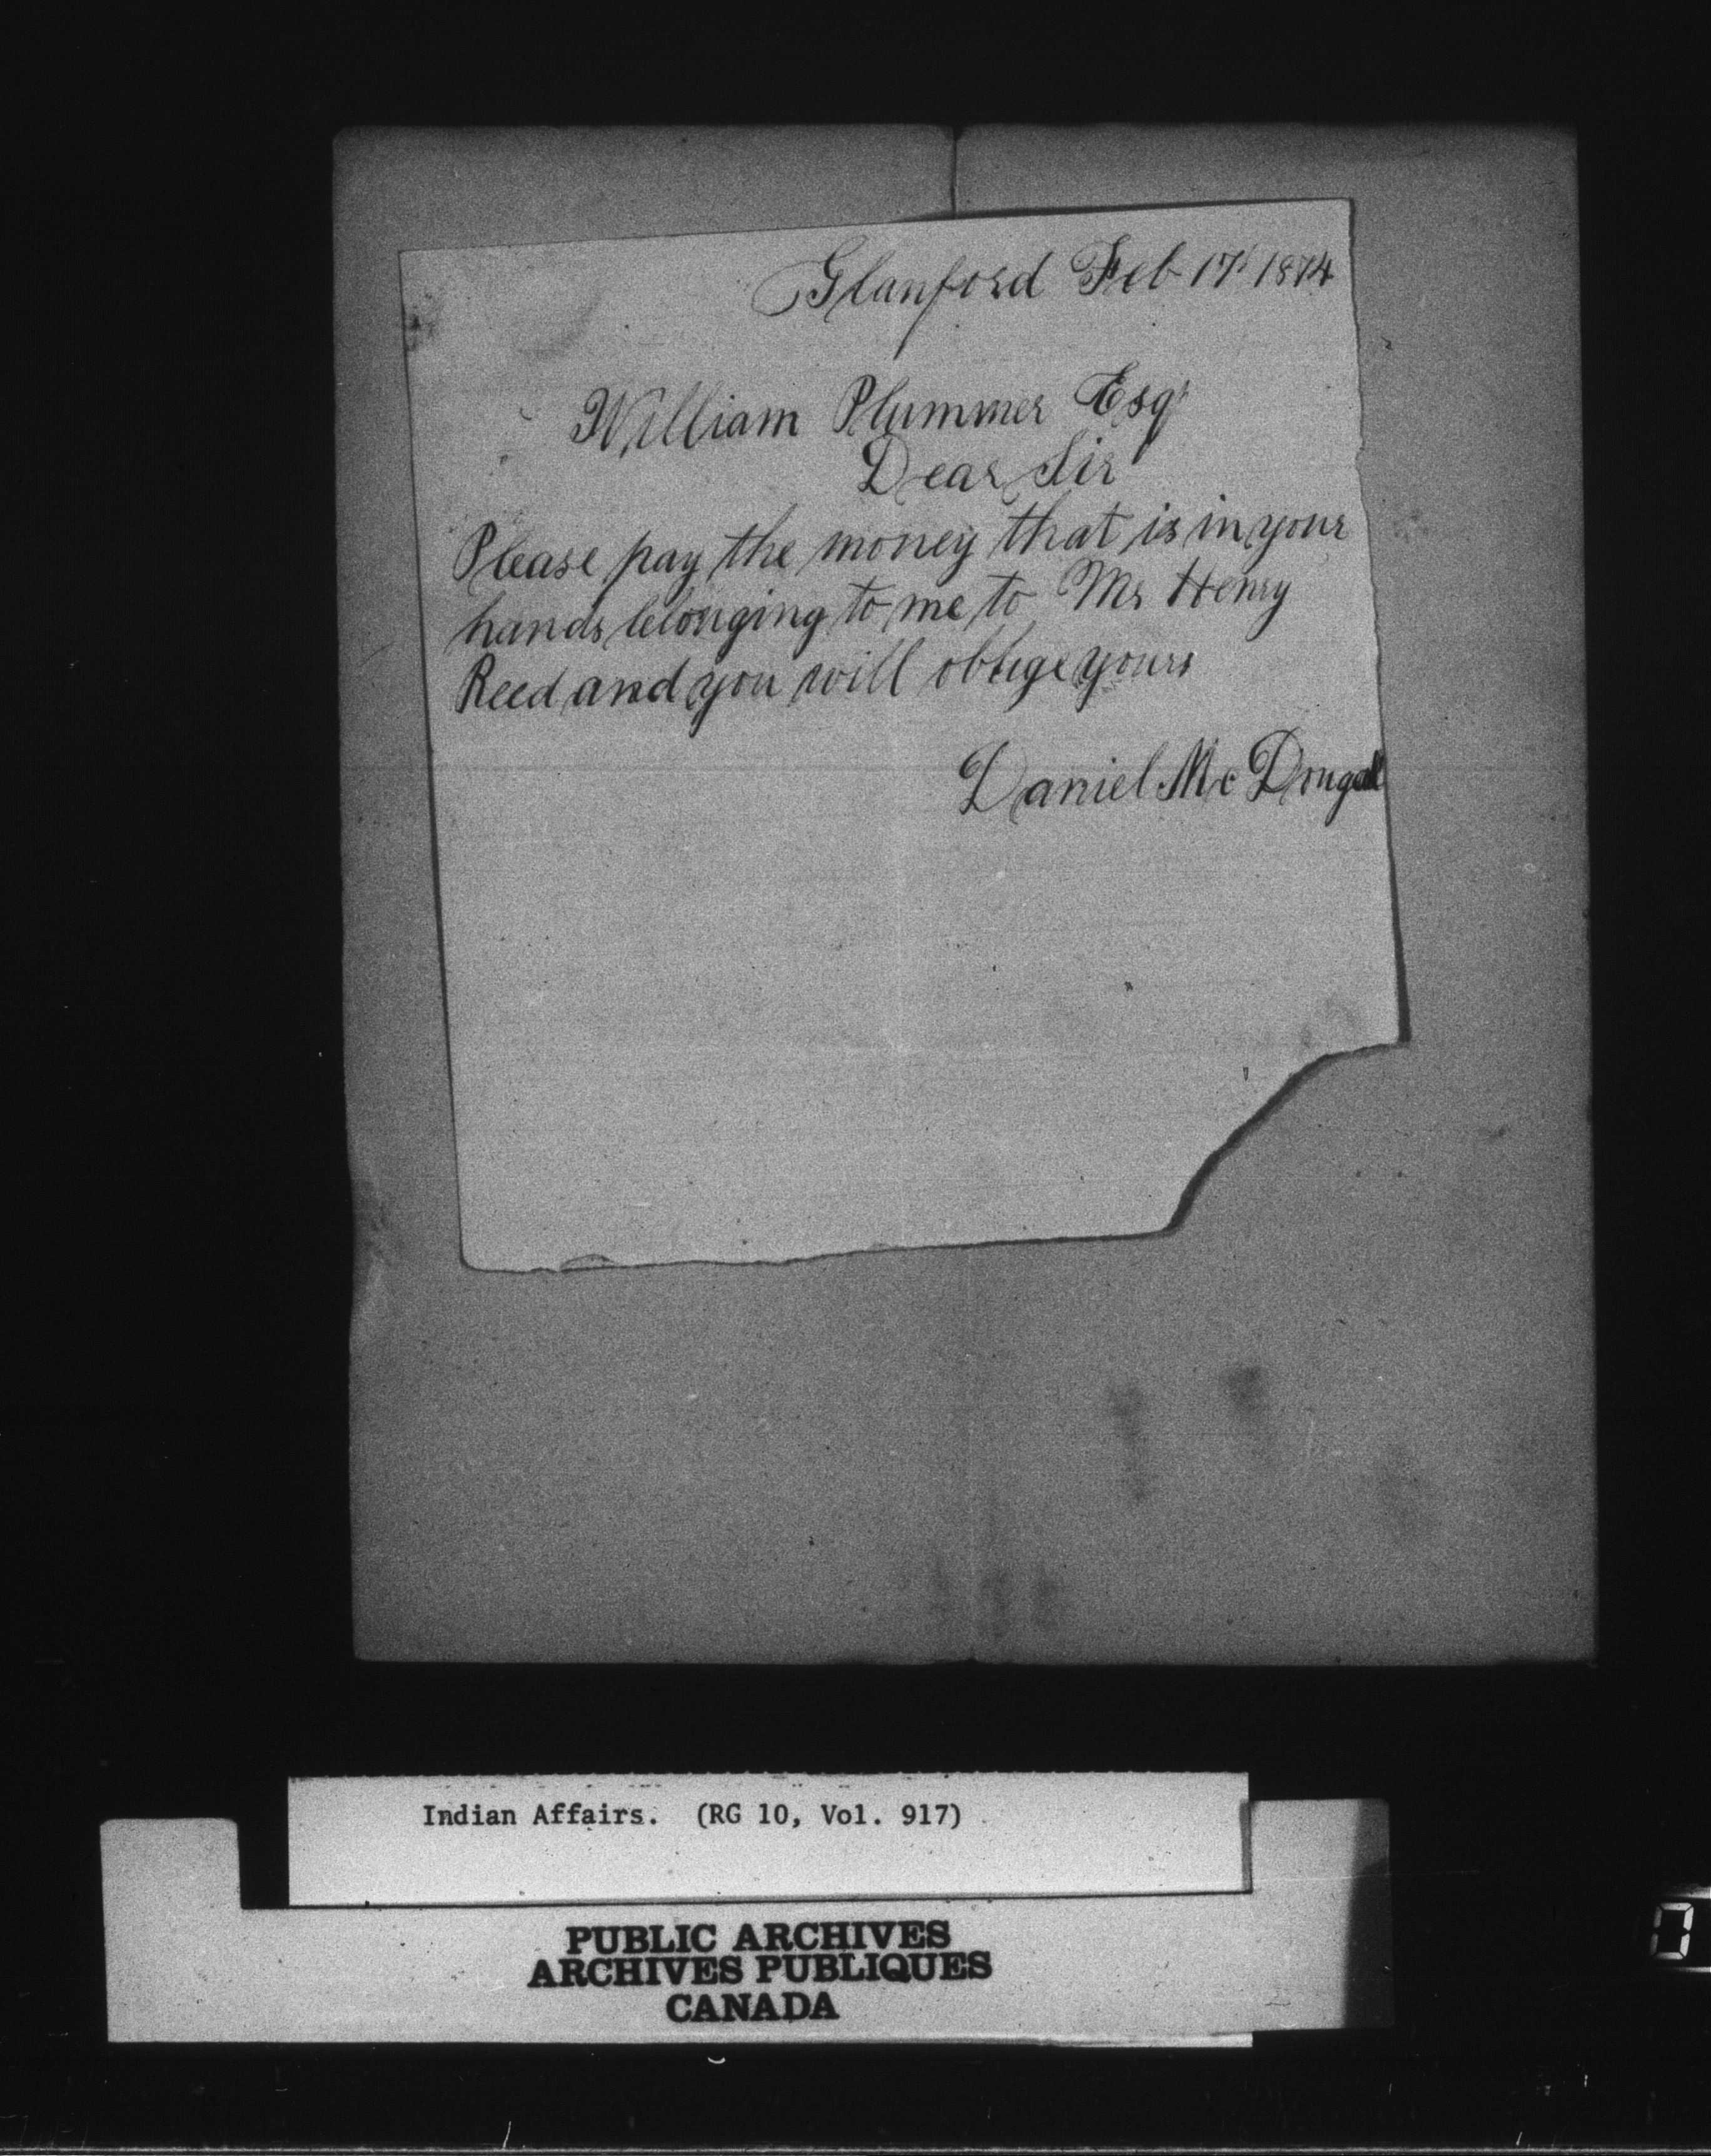 Glanford Feb 17th 1874
William Plummer Esqr
Dear Sir
Please pay the money that is in your
hands belonging to me to Mr Henry
Reed and you will oblige yours
Daniel McDougall
Indian Affairs. (RG 10, Vol. 917)
PUBLIC ARCHIVES
ARCHIVES PUBLIQUES
CANADA
0